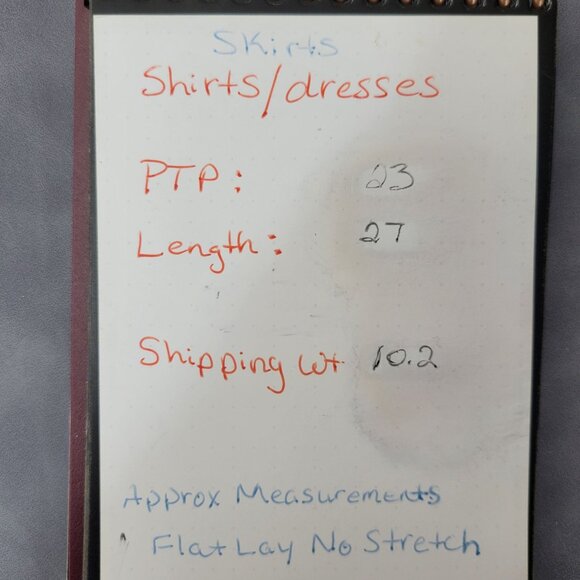 Skirts
Shirts/dresses
PTP: 23
Length: 27
Shipping wt 10.2
Approx Measurements
Flat Lay No Stretch